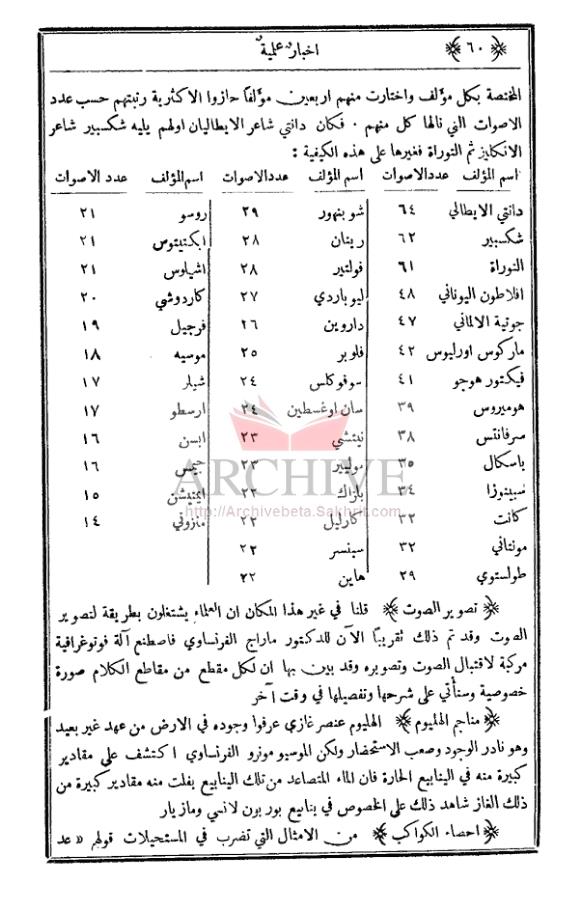 ﴿ ٦٠ ﴾ اخبار علمية
المختصة بكل مؤلف واختارت منهم اربعين مؤلفًا حازوا الاكثرية رتبتهم حسب عدد
الاصوات التي نالها كل منهم ٠ فكان دانتي شاعر الايطاليان اولهم يليه شكسبير شاعر
الانكليز ثم التوراة فغيرها على هذه الكيفية :
اسم المؤلف عددالاصوات اسم المؤلف عددالاصوات اسم المؤلف عدد الاصوات
دانتي الايطالي ٦٤ شوبنهور ٢٩ روسو ٢١
شكسبير ٦٢ رينان ٢٨ ابكتيتوس ٢١
التوراة ٦١ فولتير ٢٨ اشيلوس ٢١
افلاطون اليوناني ٤٨ ليوباردي ٢٧ كاردوشي ٢٠
جوتية الالماني ٤٧ داروين ٢٦ فرجيل ١٩
ماركوس اورليوس ٤٢ فلوبر ٢٥ موسيه ١٨
فيكتور هوجو ٤١ سوفوكلس ٢٤ شيلر ١٧
هوميروس ٣٩ سان اوغسطين ٢٤ ارسطو ١٧
سرفانتس ٣٨ نيتشي ٢٣ ابسن ١٦
باسكال ٣٥ موليير ٢٣ جيمس ١٦
سبينوزا ٣٤ بلزاك ٢٢ ايمنيشن ١٥
كانت ٣٢ كارليل ٢٢ منزوني ١٤
مونتاني ٣٢ سبنسر ٢٢
طولستوي ٢٩ هاين ٢٢
ARCHIVE
http://Archivebeta.Sakhrit.com
﴿ تصوير الصوت ﴾ قلنا في غير هذا المكان ان العلماء يشتغلون بطريقة لتصوير
الصوت وقد تم ذلك تقريبًا الآن للدكتور ماراج الفرنساوي فاصطنع آلة فوتوغرافية
مركبة لاقتبال الصوت وتصويره وقد بين بها ان لكل مقطع من مقاطع الكلام صورة
خصوصية وسنأتي على شرحها وتفصيلها في وقت آخر
﴿ مناجم الهليوم ﴾ الهليوم عنصر غازي عرفوا وجوده في الارض من عهد غير بعيد
وهو نادر الوجود وصعب الاستحضار ولكن الموسيو مورو الفرنساوي اكتشف على مقادير
كبيرة منه في الينابيع الحارة فان الماء المتصاعد من تلك الينابيع يفلت منه مقادير كبيرة من
ذلك الغاز شاهد ذلك على الخصوص في ينابيع بور بون لانسي وماز يار
﴿ احصاء الكواكب ﴾ من الامثال التي تضرب في المستحيلات قولهم « عد